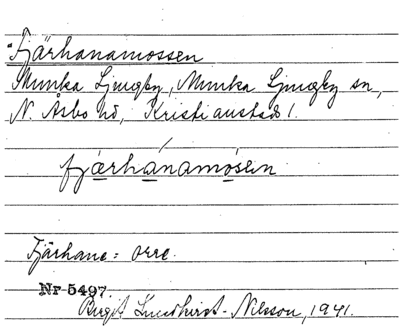 Fjärhanamossen
Munka Ljungby, Munka Ljungby sn,
N. Åsbo hd, Kristianstads l.
fjærhánamósen
Fjärhane = orre.
Nr 5497.
Birgit Lundkvist-Nilsson, 1941.